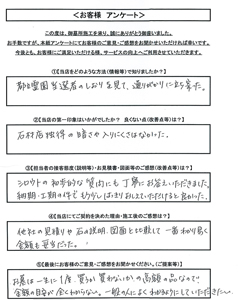 ＜お客様 アンケート＞
この度は、御墓用施工を承り、誠にありがとう御座いました。
お手数ですが、本紙アンケートにてお客様のご意見・ご感想をお聞かせいただければ幸いです。
今後とも、お客様にご満足いただける様、サービスの向上へご利用させていただきます。
①【当店をどのような方法（情報等）で知りましたか？】
都立霊園当選者のしおりを見て、通りがかりに立ち寄った。
②【当店の第一印象はいかがでしたか？ 良くない点（改善点等）は？】
石材店独得の暗さや入りにくさはなかった。
③【担当者の接客態度（説明等）・お見積書・図面等のご感想（改善点等）は？】
シロウトの初歩的な質問にも丁寧にお答えいただきました。
納期・工期の件で
④【当店にてご契約を決めた理由・施工後のご感想は？】
他社の見積りや石の説明、図面と比較して一番わかり易く
金額も妥当だった。
⑤【最後にお客様のご意見・ご感想をお聞かせください。（ご提案等）】
お墓は一生に1度買うか買わないかの高額の品なので
金額の目安が全くわからない。一般の人によくわかるようにしていただきたい。